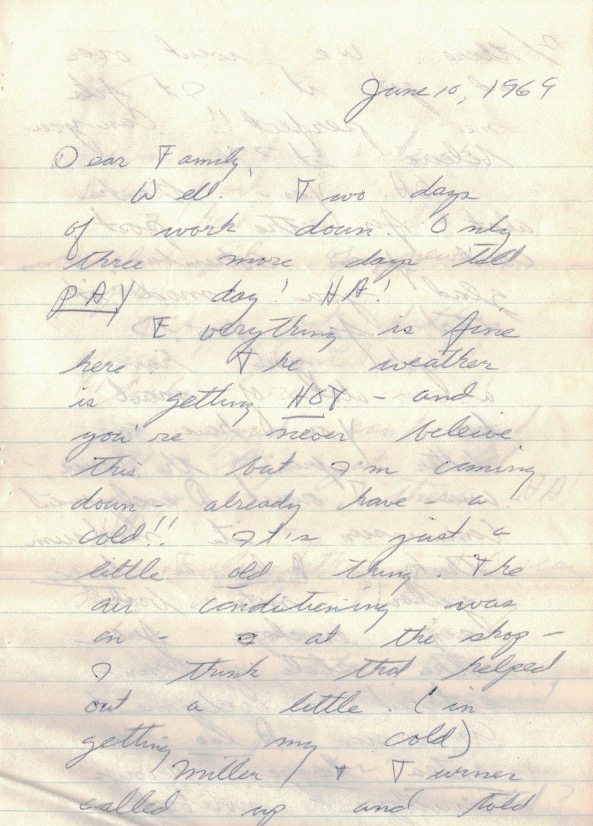 June 10, 1969
Dear Family,
Well. Two days
of work down. Only
three more days till
PAY day! HA!
Everything is fine
here. The weather
is getting HOT - and
you're never beleive
this but I'm coming
down - already have - a
cold!! It's just a
little old thing. The
air conditioning was
on - at the shop -
I think that helped
out a little. (in
getting my cold)
Miller & Turner
called up and told